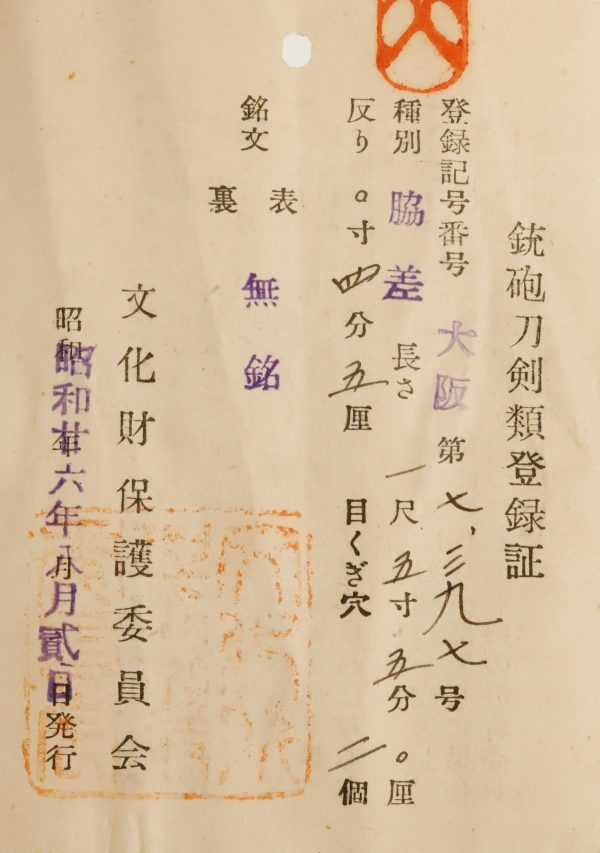 銃砲刀剣類登録証
登録記号番号 大阪 第 七、三九七 号
種別 脇差 長さ 一尺五寸五分〇厘
反り 〇寸四分五厘 目くぎ穴 二個
銘文 表
裏 無銘
文化財保護委員会
昭和 年 月 日発行
昭和廿六年八月貳日